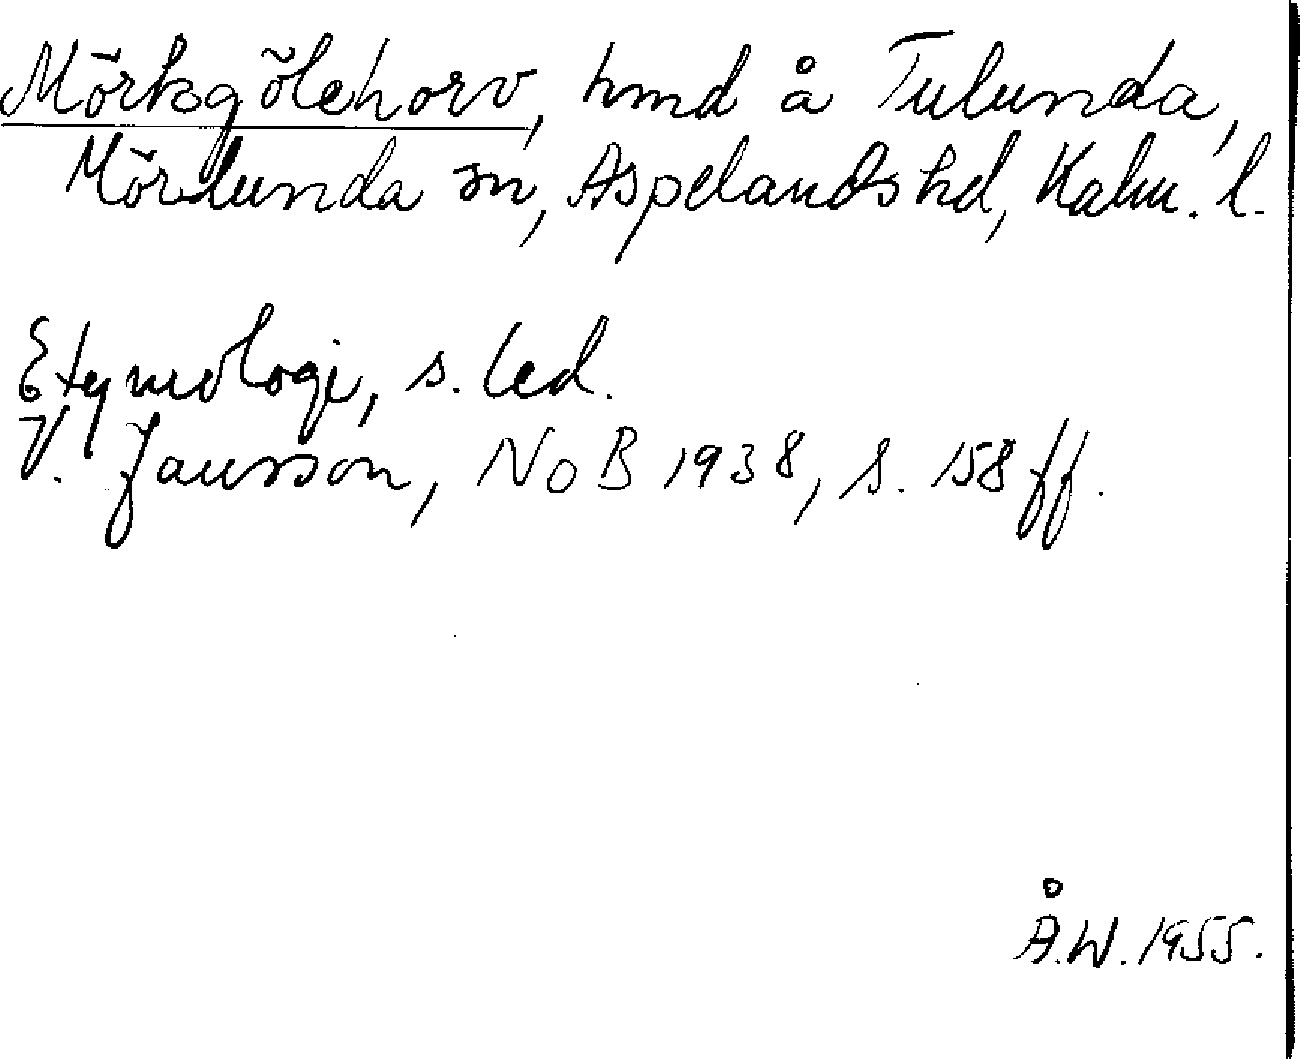 Mörkgölehorv, hmd å Tulunda,
Mörlunda sn, Aspelands hd, Kalm. l.
Etymologi, s. led.
V. Jansson, NoB 1938, s. 158 ff.
Å.W. 1955.